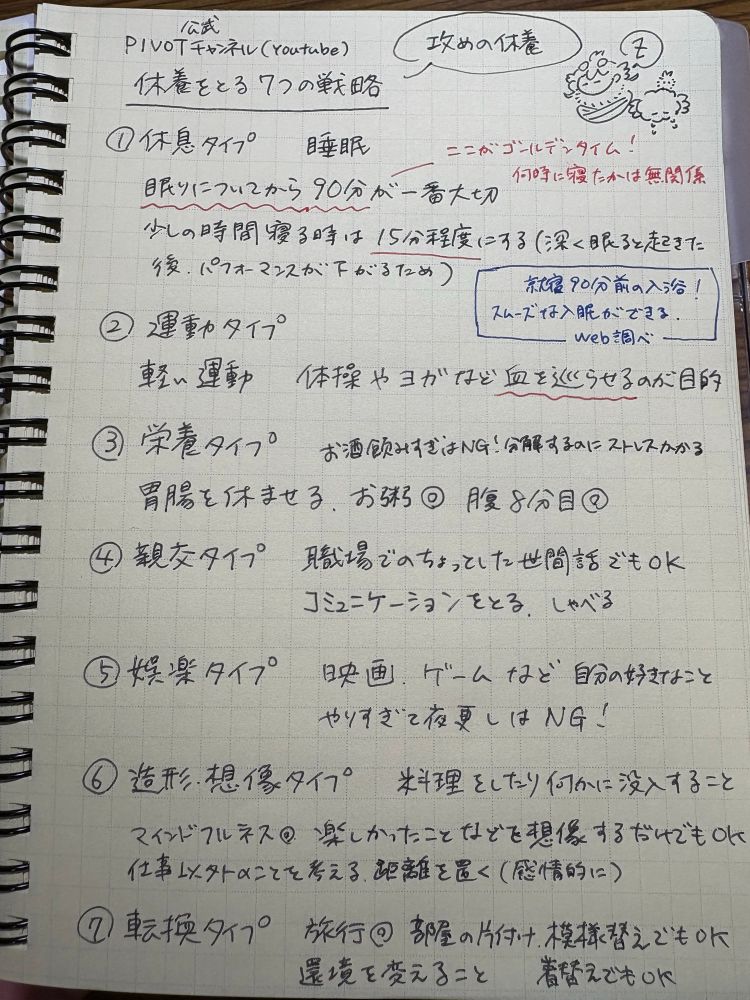 公式
PIVOTチャンネル(Youtube)
攻めの休養
Z
休養をとる7つの戦略
① 休息タイプ 睡眠
ここがゴールデンタイム!
何時に寝たかは無関係
眠りについてから90分が一番大切
少しの時間寝る時は15分程度にする(深く眠ると起きた
後、パフォーマンスが下がるため)
就寝90分前の入浴!
スムーズな入眠ができる.
web調べ
② 運動タイプ
軽い運動 体操やヨガなど血を巡らせるのが目的
③ 栄養タイプ お酒飲みすぎはNG!分解するのにストレスかかる
胃腸を休ませる、お粥◎ 腹8分目◎
④ 親交タイプ 職場でのちょっとした世間話でもOK
コミュニケーションをとる、しゃべる
⑤ 娯楽タイプ 映画、ゲームなど自分の好きなこと
やりすぎて夜更しはNG!
⑥ 造形・想像タイプ 料理をしたり何かに没入すること
マインドフルネス◎ 楽しかったことなどを想像するだけでもOK
仕事以外のことを考える、距離を置く(感情的に)
⑦ 転換タイプ 旅行◎ 部屋の片付け、模様替えでもOK
環境を変えること 着替えでもOK